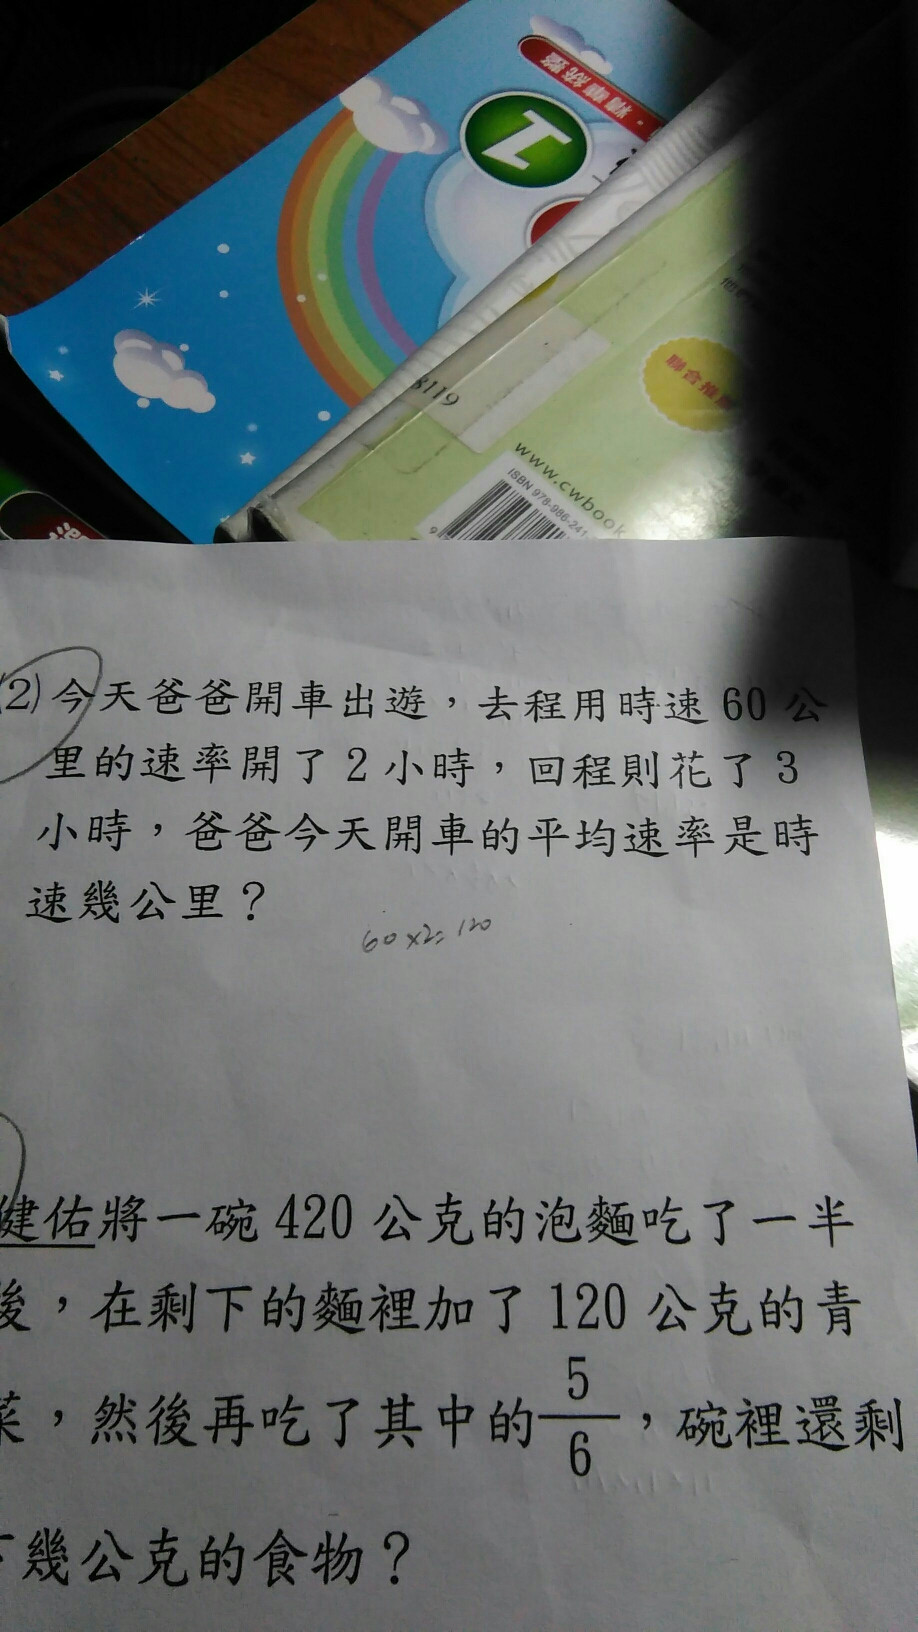 精華統整
1
8119
www.cwbook
ISBN 978-986-241-
9
聯合推薦
(2)今天爸爸開車出遊，去程用時速 60 公
里的速率開了 2 小時，回程則花了 3
小時，爸爸今天開車的平均速率是時
速幾公里？
60×2=120
健佑將一碗 420 公克的泡麵吃了一半
後，在剩下的麵裡加了 120 公克的青
菜，然後再吃了其中的5/6，碗裡還剩
下幾公克的食物？